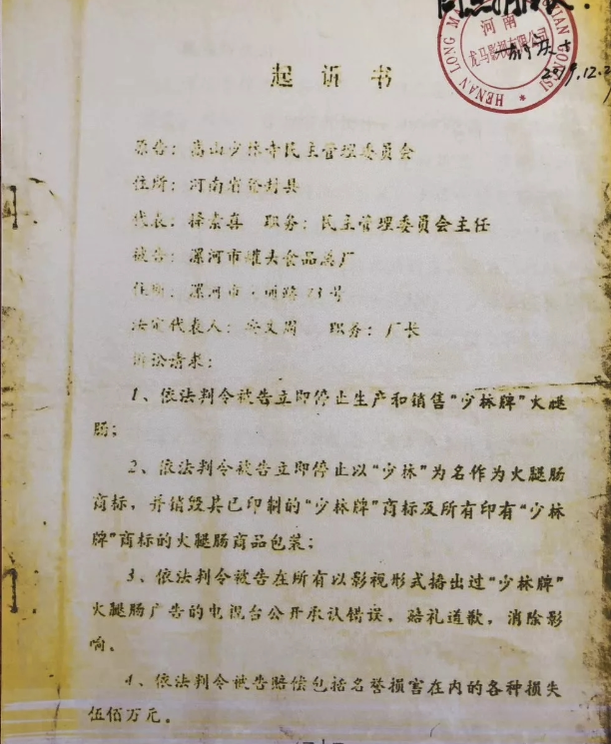 河南
龙马影视有限公司
HENAN LONG M
UAN GONGSI
2019.12.2
起诉书
原告：嵩山少林寺民主管理委员会
住所：河南省登封县
代表：释素喜 职务：民主管理委员会主任
被告：漯河市罐头食品总厂
住所：漯河市 路73号
法定代表人： 文周 职务：厂长
诉讼请求：
1、依法判令被告立即停止生产和销售“少林牌”火腿
肠；
2、依法判令被告立即停止以“少林”为名作为火腿肠
商标，并销毁其已印制的“少林牌”商标及所有印有“少林
牌”商标的火腿肠商品包装；
3、依法判令被告在所有以影视形式播出过“少林牌”
火腿肠广告的电视台公开承认错误，赔礼道歉，消除影
响。
4、依法判令被告赔偿包括名誉损害在内的各种损失
伍佰万元。